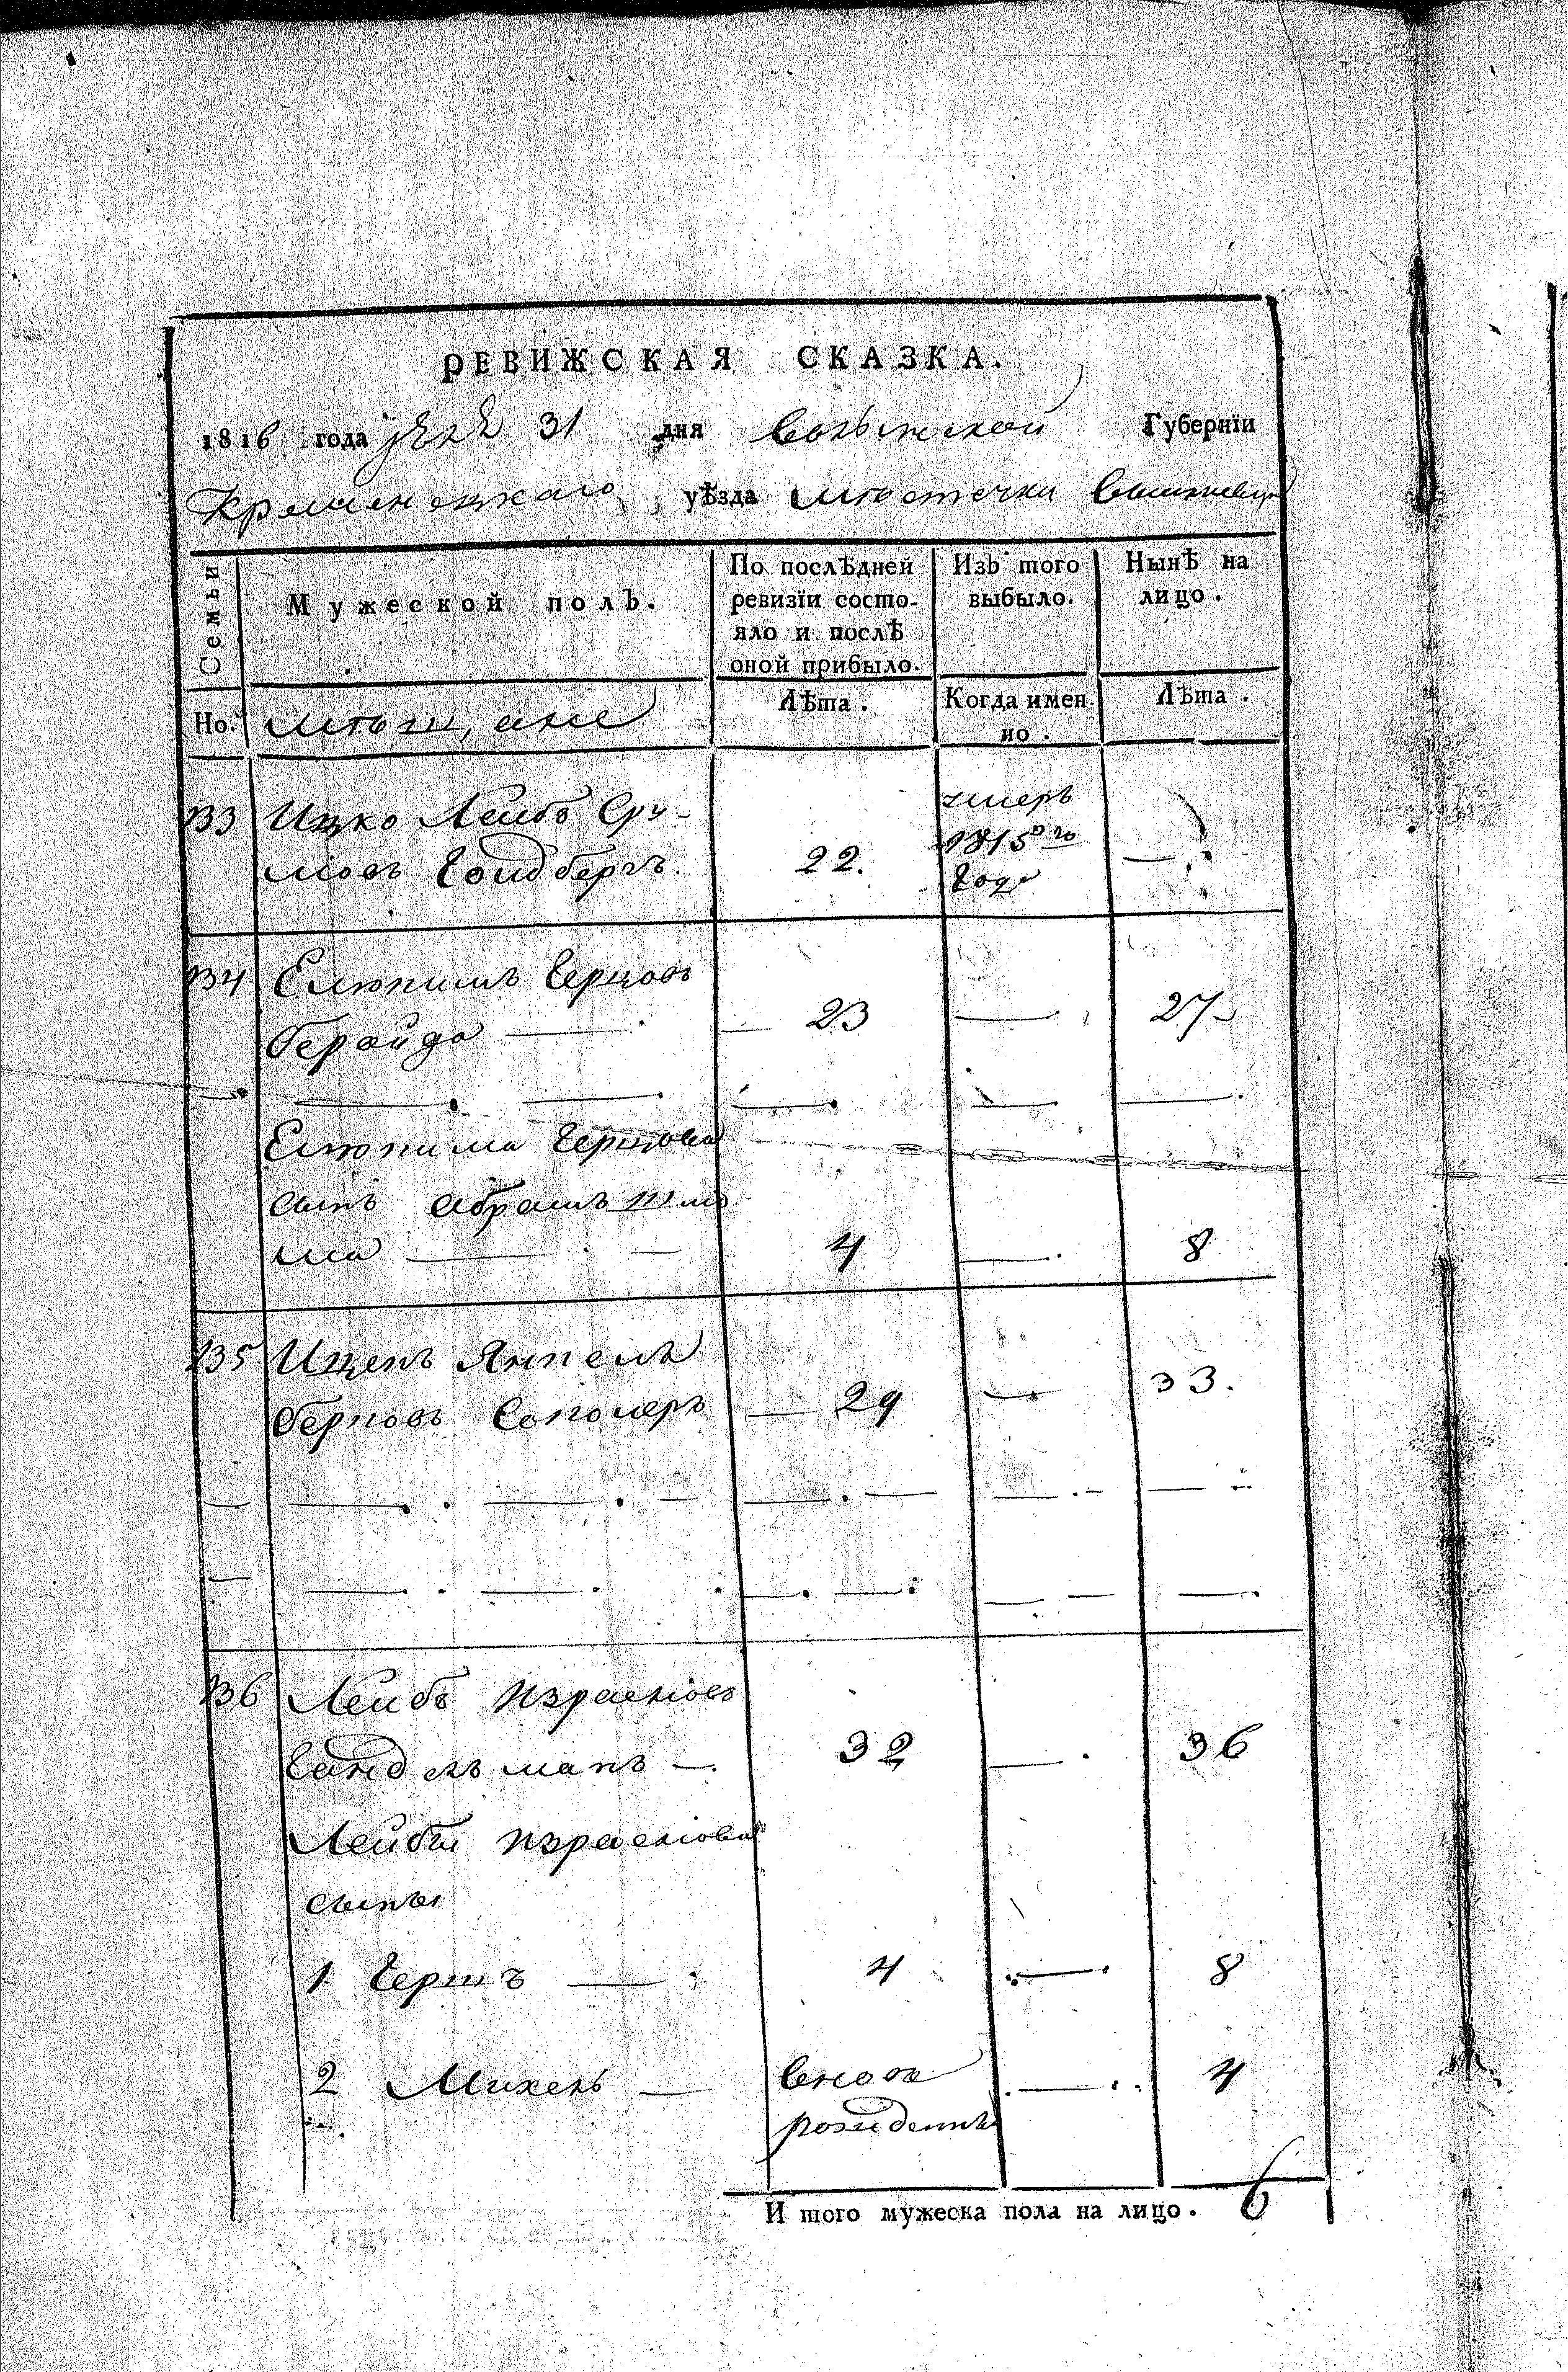 РЕВИЖСКАЯ СКАЗКА.
1816 года 31 дня Волынской Губернїи
Кременецкаго уѣзда местечка Вишневца
Семьи
Мужеской полъ.
По послѣдней ревизїи состо-
яло и послѣ
оной прибыло.
Изъ того
выбыло.
Нынѣ на
лицо.
Но.
мѣщане
Лѣта.
Когда имен
но.
Лѣта.
133 Ицко Лейбъ Сру-
22.
умеръ
1815го
года
—
134 Герцовъ
— 23 — 27
Герцова
сынъ Абрамъ Шлио
ма — 4 — 8
135 Ицекъ Янкель
Берковъ — 29 — 33.
136 Лейбъ Израелювъ
Гандельманъ — 32 — 36
Лейбы Израелюва
сыны
1 Гершъ — 4 — 8
2 Михель — вновь
рожденный — 4
И того мужеска пола на лицо. 6